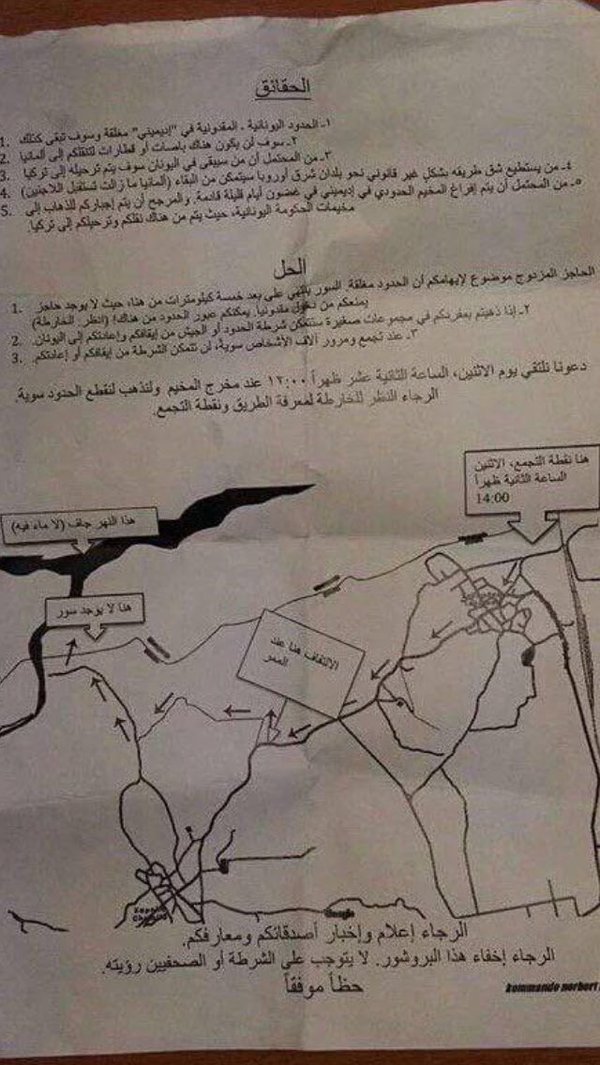 الحقائق
1. ١- الحدود اليونانية - المقدونية في "إديميني" مغلقة وسوف تبقى كذلك
2. ٢- سوف لن يكون هناك باصات أو قطارات لتنقلكم إلى ألمانيا
3. ٣- من المحتمل أن من سيبقى في اليونان سوف يتم ترحيله إلى تركيا
4. ٤- من يستطيع شق طريقه بشكل غير قانوني نحو بلدان شرق أوروبا سيتمكن من البقاء (ألمانيا ما زالت تستقبل اللاجئين)
5. ٥- من المحتمل أن يتم إفراغ المخيم الحدودي في إديميني في غضون أيام قليلة قادمة. والمرجح أن يتم إجباركم للذهاب إلى
مخيمات الحكومة اليونانية، حيث يتم من هناك نقلكم وترحيلكم إلى تركيا.
الحل
1. الحاجز المزدوج موضوع لإيهامكم أن الحدود مغلقة. السور ينتهي على بعد خمسة كيلومترات من هنا، حيث لا يوجد حاجز
يمنعكم من دخول مقدونيا. يمكنكم عبور الحدود من هناك! (انظر الخارطة)
2. ٢- إذا ذهبتم بمفردكم في مجموعات صغيرة ستتمكن شرطة الحدود أو الجيش من إيقافكم وإعادتكم إلى اليونان.
3. ٣- عند تجمع ومرور آلاف الأشخاص سوية، لن تتمكن الشرطة من إيقافكم أو إعادتكم.
دعونا نلتقي يوم الاثنين، الساعة الثانية عشر ظهراً ١٢:٠٠ عند مخرج المخيم ولنذهب لنقطع الحدود سوية.
الرجاء النظر للخارطة لمعرفة الطريق ونقطة التجمع.
هنا نقطة التجمع، الاثنين
الساعة الثانية ظهراً
14:00
هذا النهر جاف (لا ماء فيه)
هنا لا يوجد سور
الالتفاف هنا عند
الممر
Google
الرجاء إعلام وإخبار أصدقائكم ومعارفكم.
الرجاء إخفاء هذا البروشور. لا يتوجب على الشرطة أو الصحفيين رؤيته.
حظاً موفقاً
kommando norbert